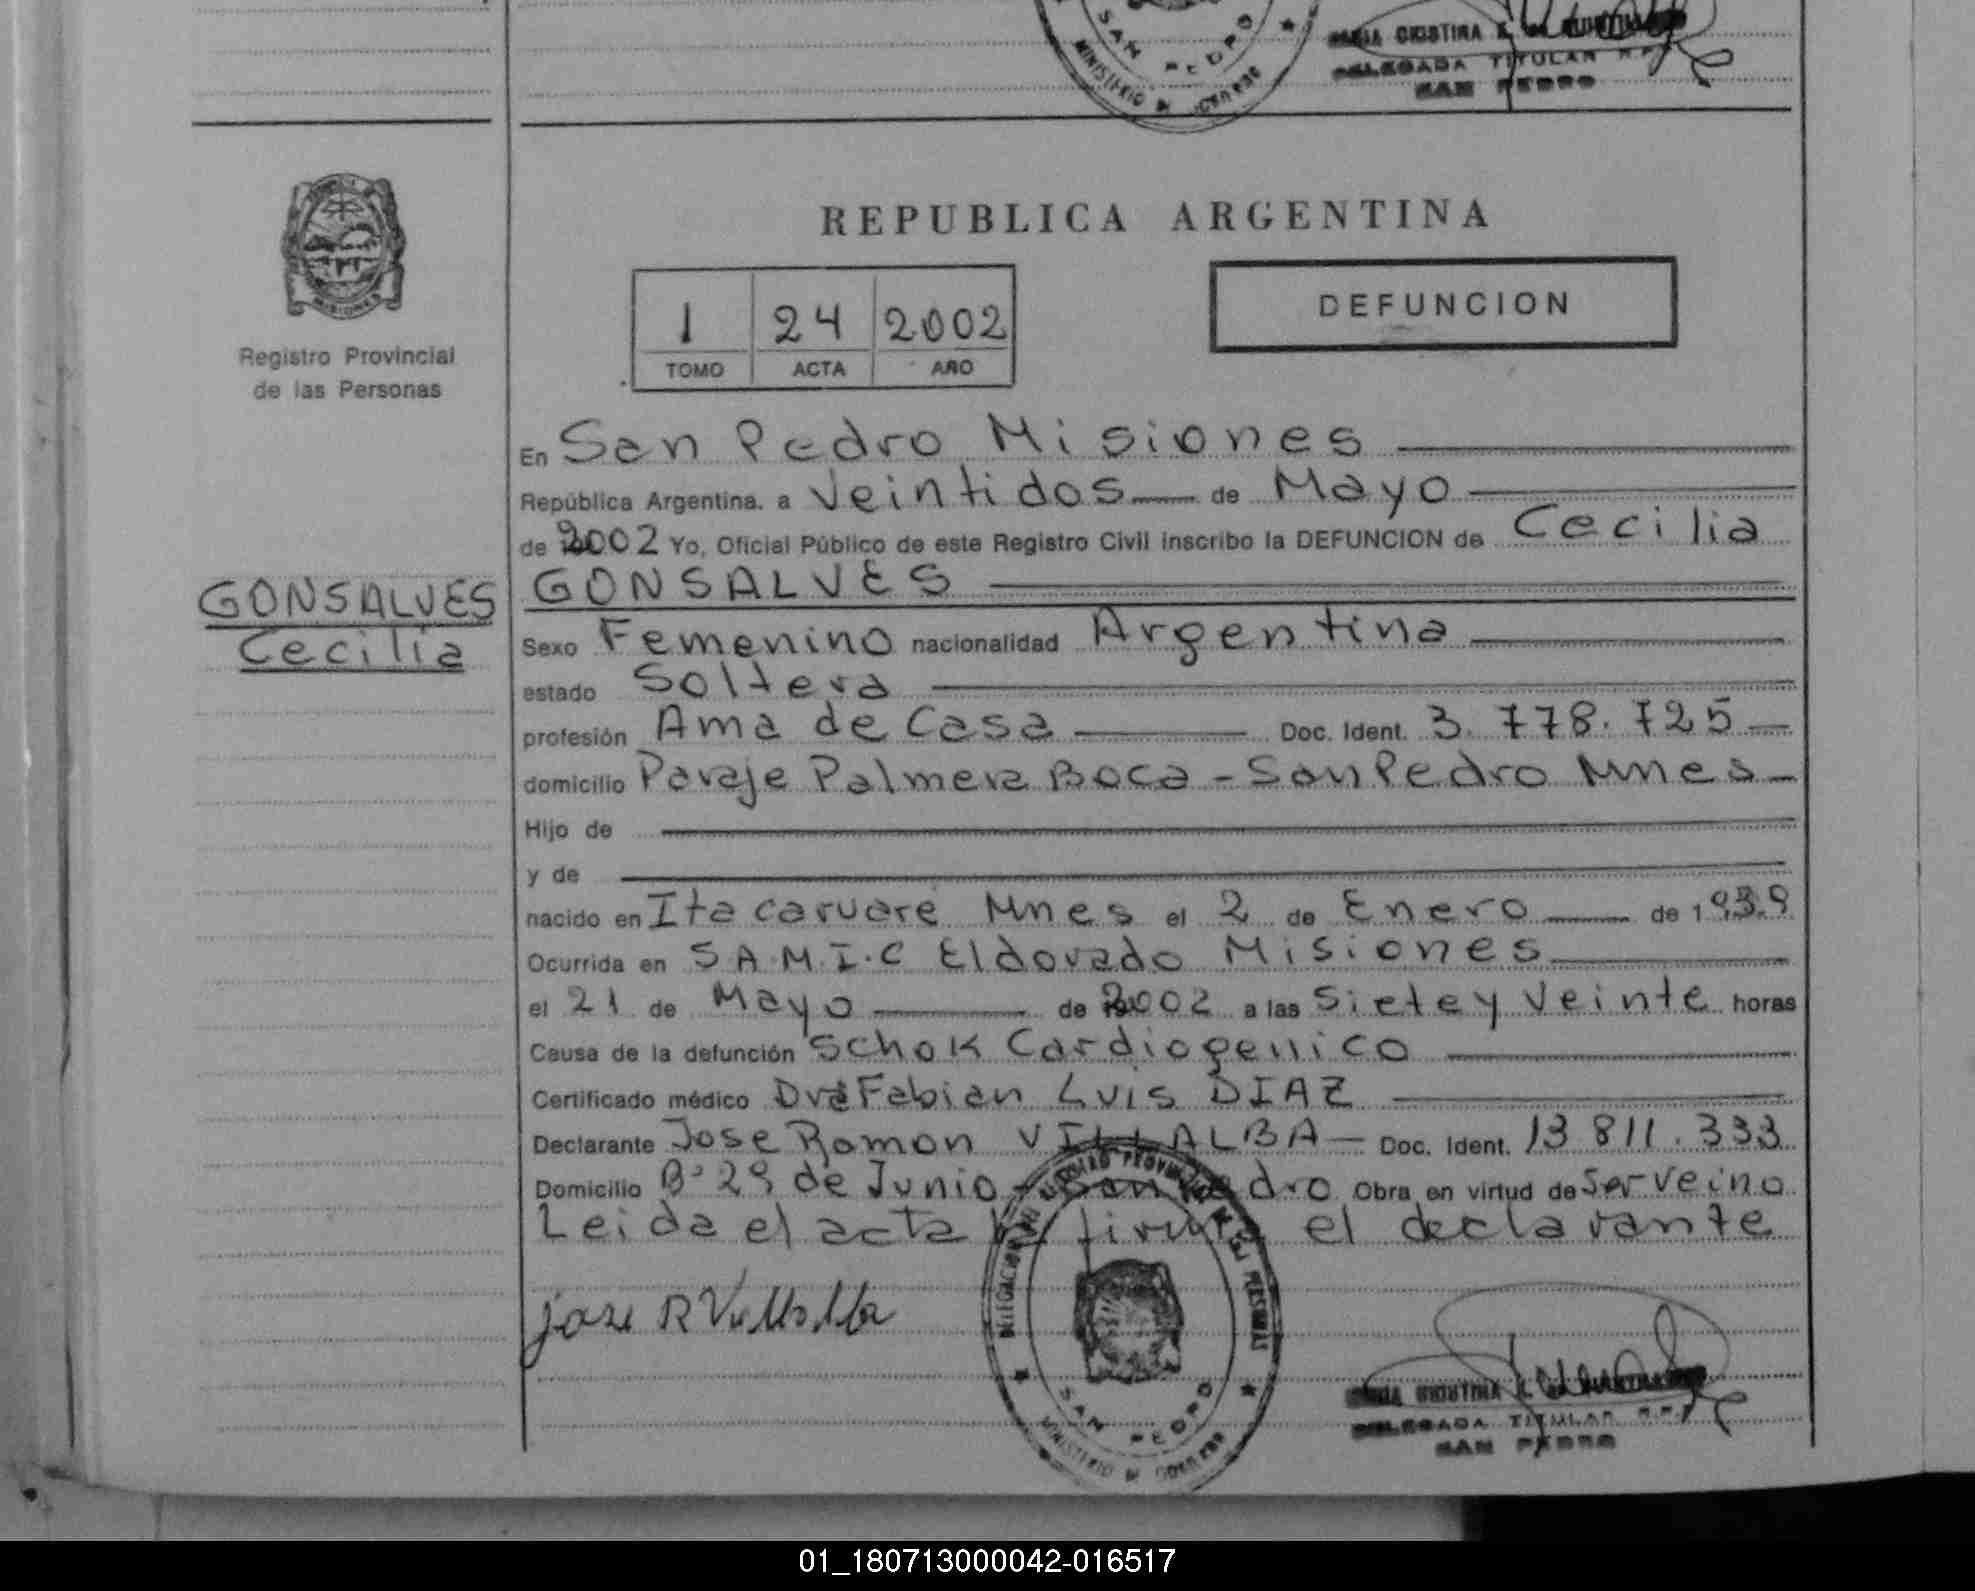 SAN PEDRO
MINISTERIO DE GOBIERNO
CRISTINA
DELEGADA TITULAR R.P.
SAN PEDRO
MISIONES
Registro Provincial
de las Personas
REPUBLICA ARGENTINA
1 24 2002
TOMO ACTA AÑO
DEFUNCION
En San Pedro Misiones
República Argentina. a Veintidos de Mayo
de 2002 Yo, Oficial Público de este Registro Civil inscribo la DEFUNCION de Cecilia
GONSALVES
GONSALVES
Cecilia
Sexo Femenino nacionalidad Argentina
estado Soltera
profesión Ama de Casa Doc. Ident. 3.778.725
domicilio Paraje Palmera Boca - San Pedro Mnes
Hijo de
y de
nacido en Itacaruare Mnes el 2 de Enero de 1939
Ocurrida en S.A.M.I.C Eldorado Misiones
el 21 de Mayo de 2002 a las Siete y Veinte horas
Causa de la defunción Schok Cardiogenico
Certificado médico Fabian Luis DIAZ
Declarante Jose Ramon VILLALBA Doc. Ident. 13 811.333
Domicilio B° 29 de Junio - San Pedro Obra en virtud de Ser Veino
Leida el acta la firma el declarante
jose R Villalba
DELEGACION REGISTRO PROVINCIAL DE LAS PERSONAS
SAN PEDRO
MINISTERIO DE GOBIERNO
CRISTINA
DELEGADA TITULAR R.P.
SAN PEDRO
01_180713000042-016517